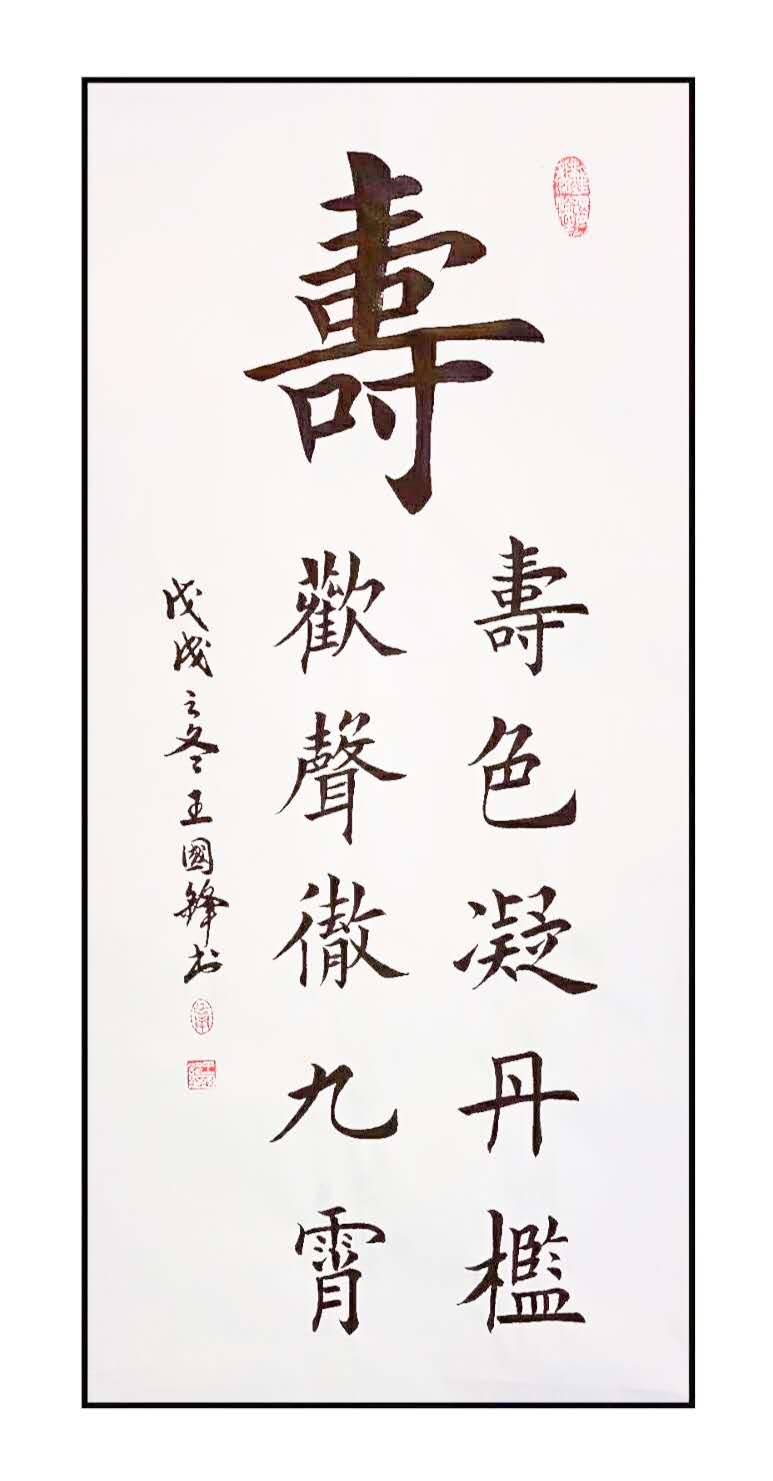 壽
壽色凝丹檻
歡聲徹九霄
戊戌之冬王國鋒书